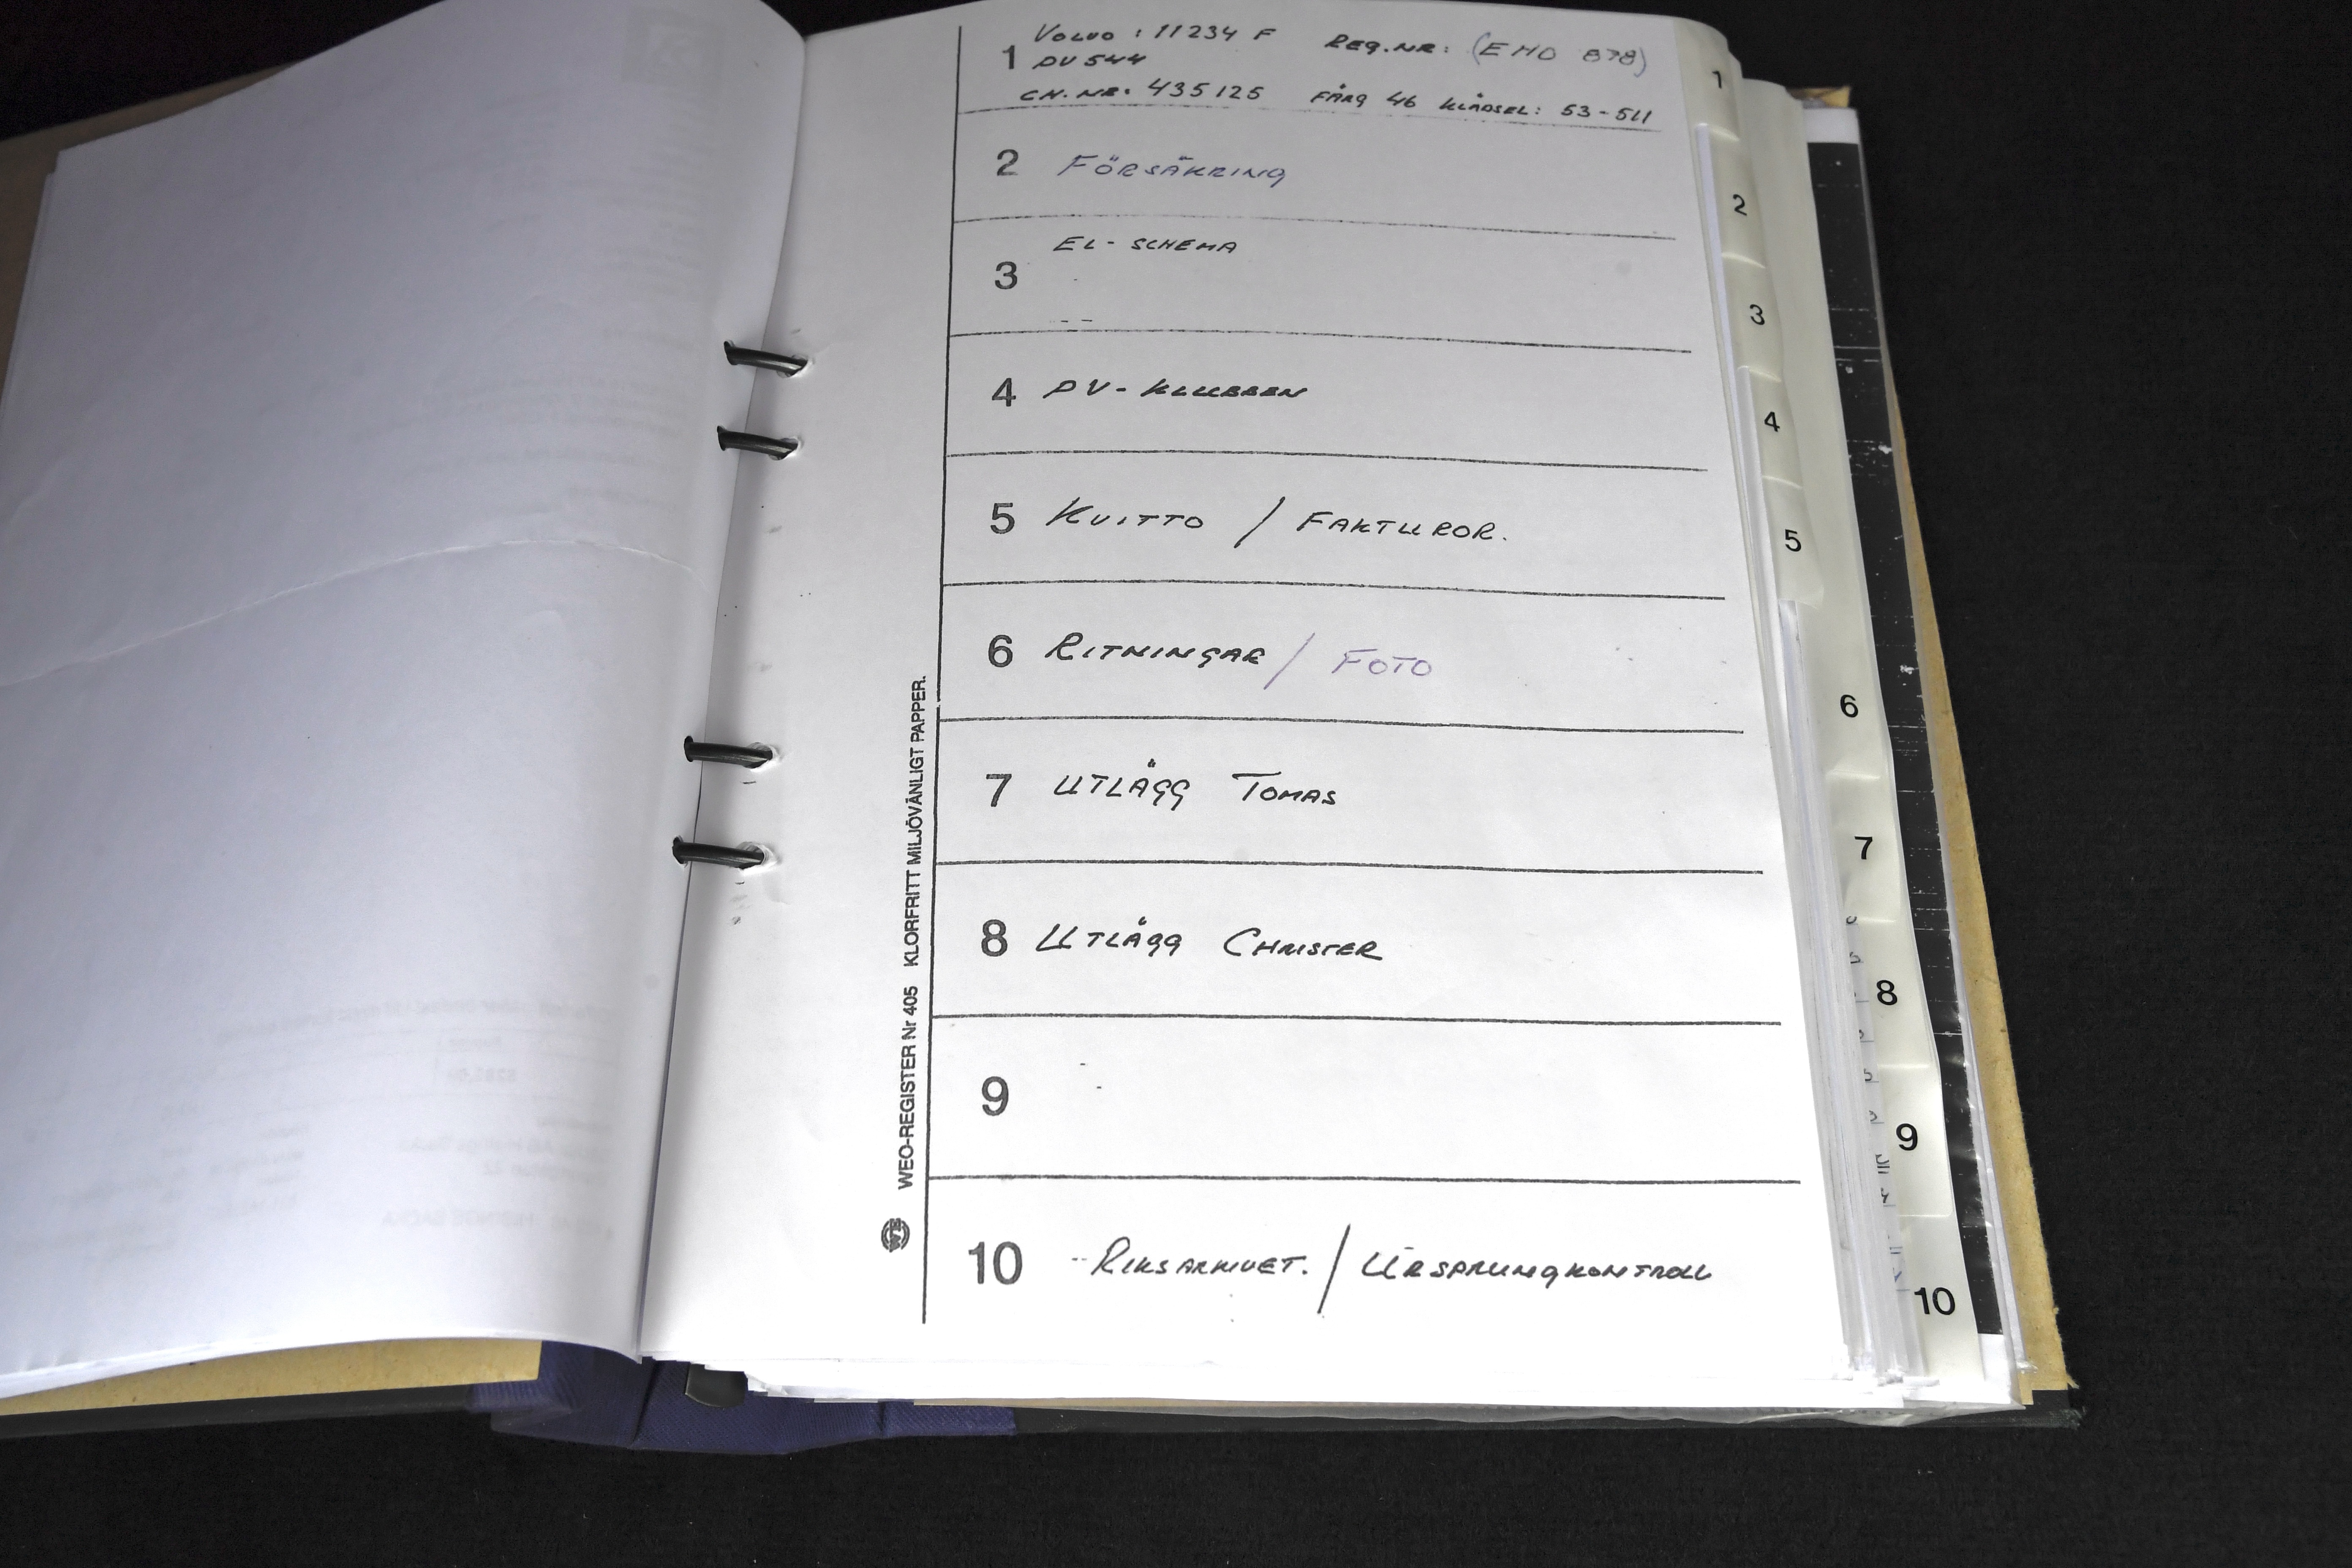 1 VOLVO : 11234 F REG.NR: (EMO 878)
PV 544
CH.NR: 435125 FÄRG 46 KLÄDSEL: 53-511
2 FÖRSÄKRING
3 EL-SCHEMA
4 PV-KLUBBEN
5 KVITTO / FAKTUROR.
6 RITNINGAR / FOTO
7 UTLÄGG TOMAS
8 UTLÄGG CHRISTER
9
10 RIKSARKIVET. / URSPRUNGKONTROLL
WEO-REGISTER Nr 405 KLORFRITT MILJÖVÄNLIGT PAPPER.
1
2
3
4
5
6
7
8
9
10